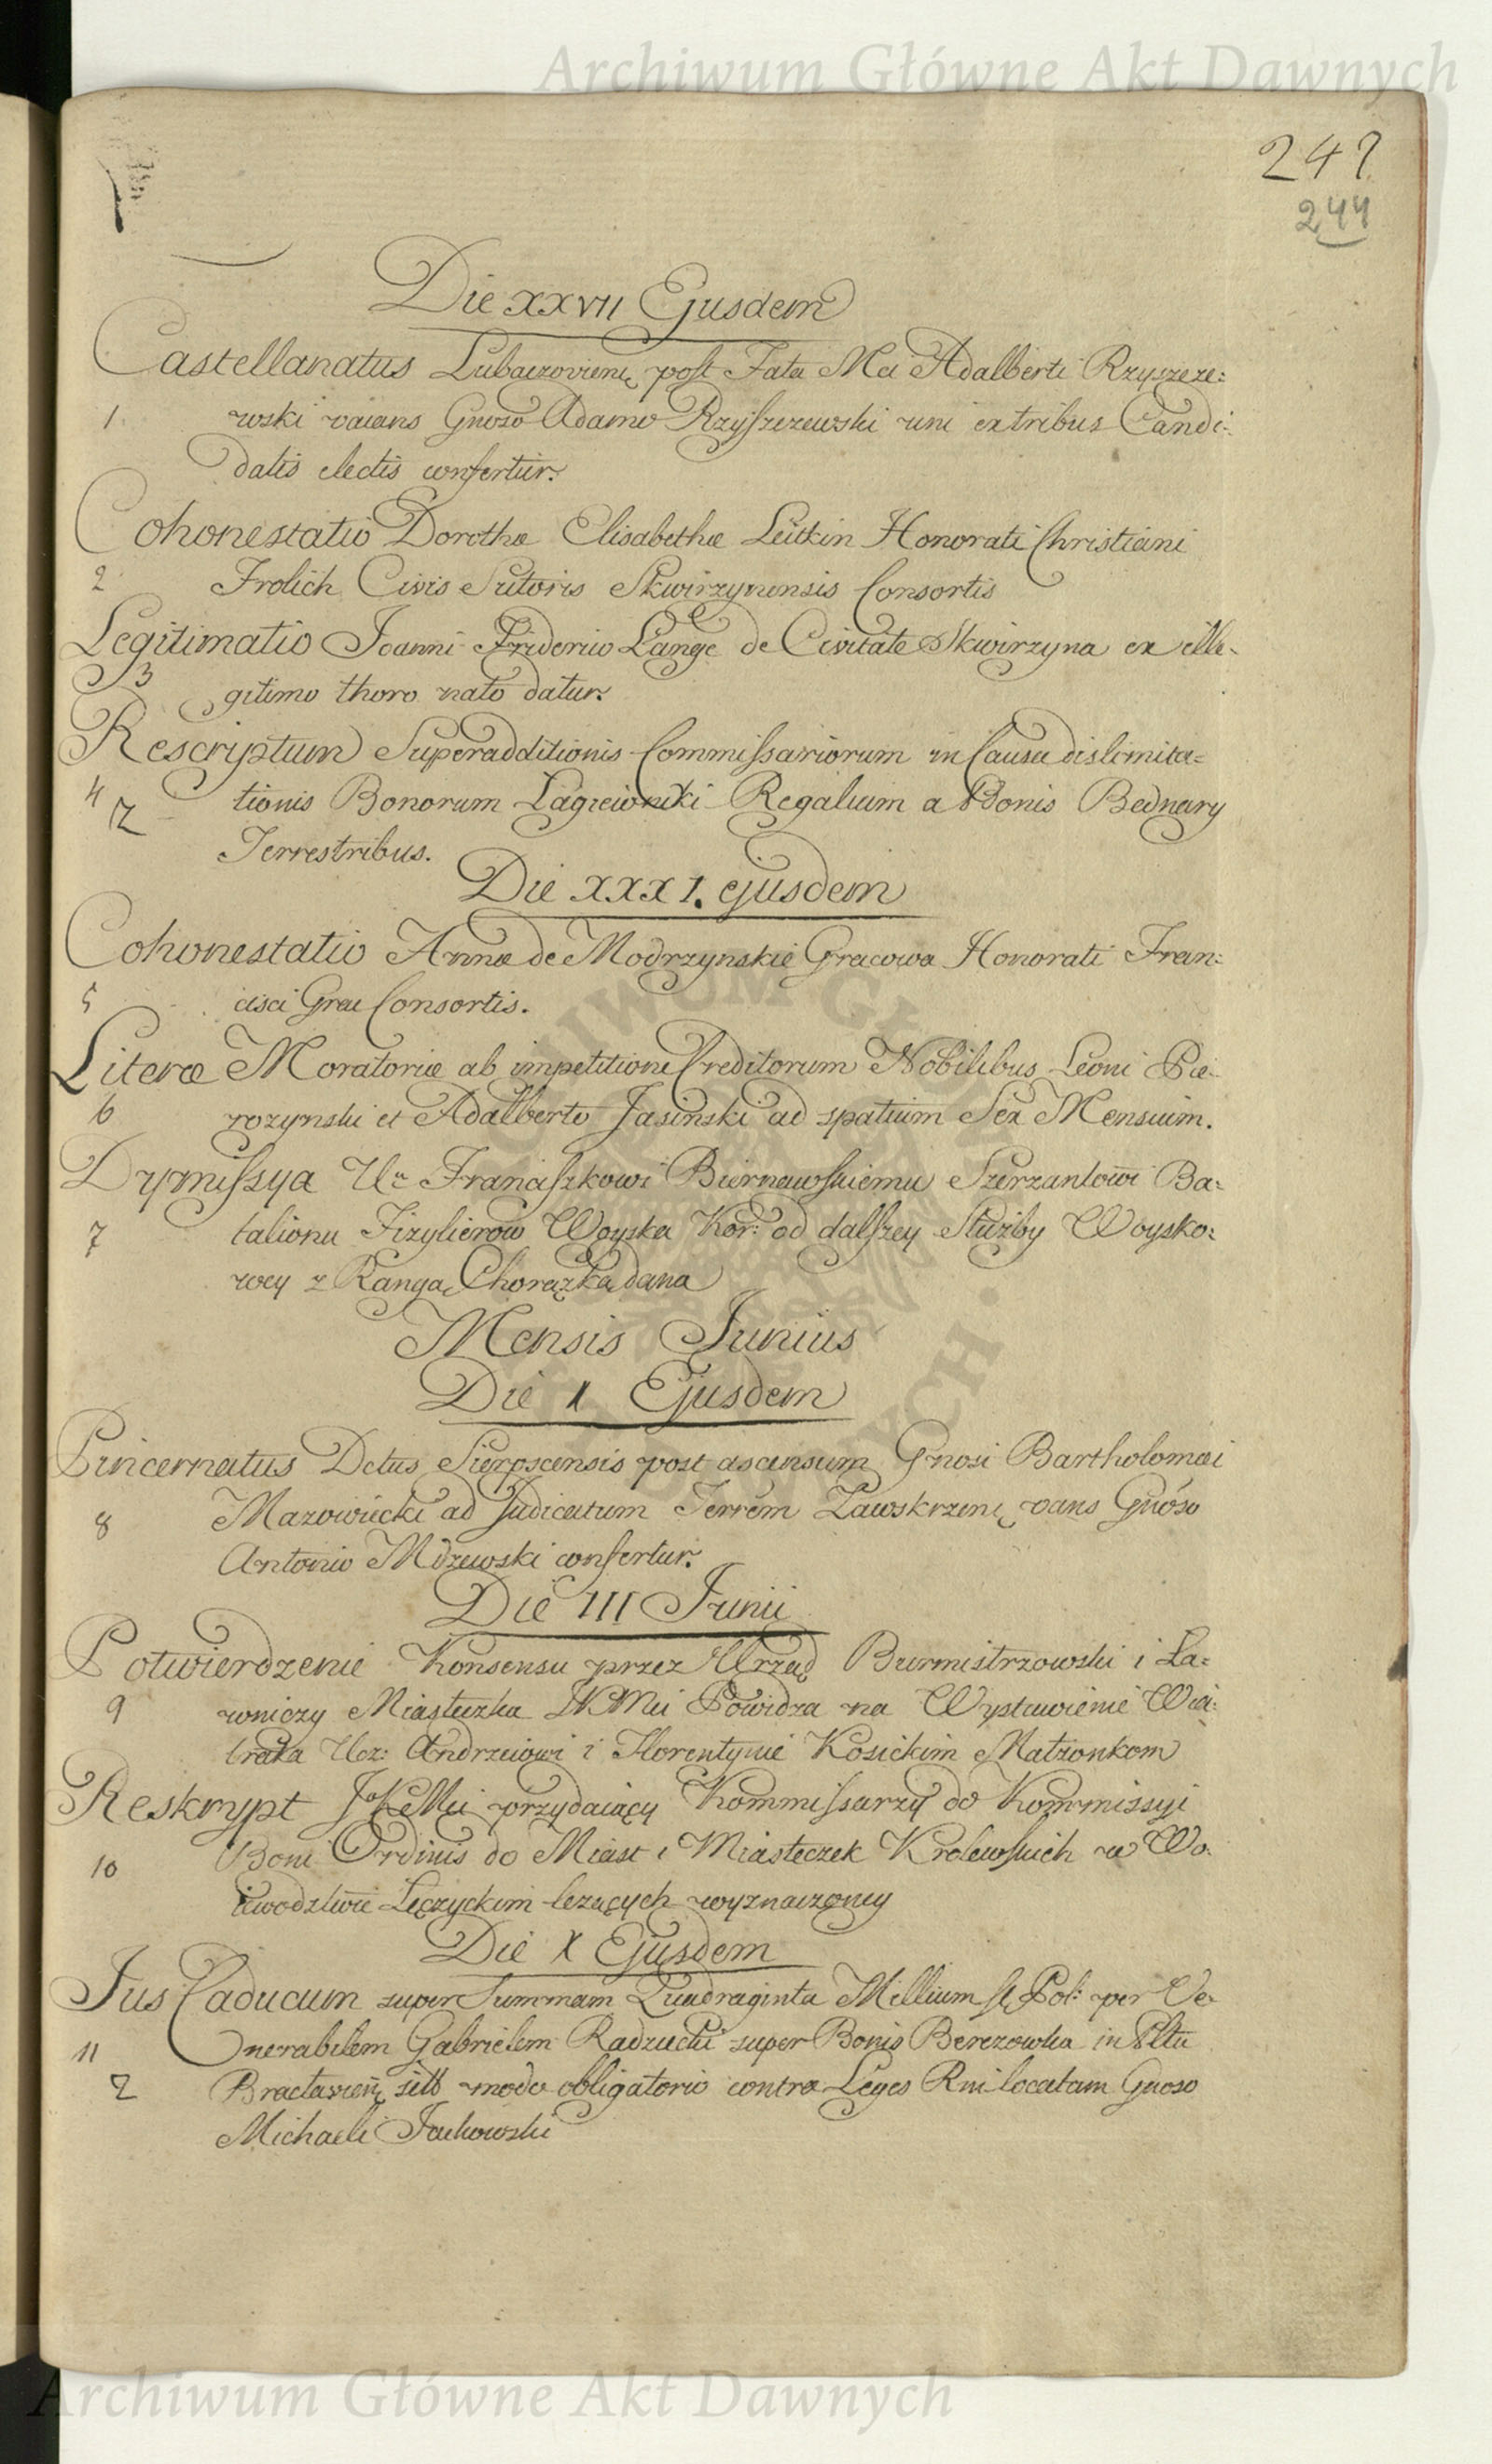 Archiwum Główne Akt Dawnych
247
244
Die XXVII Ejusdem
Castellanatus Lubaczovienę post Fata Mci Adalberti Rzyszcze:
1. wski vaians Gnoso Adamo Rzyszczewski uni ex tribus Candi:
datis electis confertur.
Cohonestatio Dorothæ Elisabethæ Leitkin Honorati Christiani
2 Frolich Civis Sutoris Skwirzynensis Consortis
Legitimatio Joanni Friderico Lange de Civitate Skwirzyna ex ille-
3 gitimo thoro nato datur.
Rescriptum Superadditionis Commissariorum in Causa dislimita=
4 tionis Bonorum Łagiewniki Regalium a Bonis Bednary
Terrestribus.
Die XXXI. ejusdem
Cohonestatio Annæ de Modrzynskie Gracowa Honorati Fran:
5 cisci Grac Consortis.
Literæ Moratoriæ ab impetitione Creditorum Nobilibus Leoni Pie-
6 rozynski et Adalberto Jasinski ad spatium Sex Mensium.
Dymissya Ur Franciszkowi Biernawskiemu Szerzantowi Ba:
7 talionu Fizylierow Woyska Kor: od dalszey Służby Woysko:
wey z Rangą Chorążką dana
Mensis Junius
Die 1 Ejusdem
Pincernatus Dctus Sierpscensis post ascensum Gnosi Bartholomæi
8 Mazowiecki ad Judicatum Terrem Zawskrzenę vans Gnoso
Antonio Mdzewski confertur.
Die III Junii
Potwierdzenie Konsensu przez Urząd Burmistrzowski i Ła=
9 wniczy Miasteczka JKMci Powidza na Wystawienie Wia:
traka Ucz: Andrzeiowi i Florentynie Kosickim Małżonkom
Reskrypt JKMci przydaiący Kommissarzy do Kommissyi
10 Boni Ordinis do Miast i Miasteczek Krolewskich w Wo:
iewodztwie Łęczyckim leżących wyznaczoney
Die X Ejusdem
Jus Caducum super Summam Quadraginta Millium fl Pol: per Ve-
11 nerabilem Gabrielem Radzicki super Bonis Berezowka in Pltu
Bractavienę sitis modo obligatorio contra Leges Rni locatam Gnoso
Michaeli Jackowski
Archiwum Główne Akt Dawnych